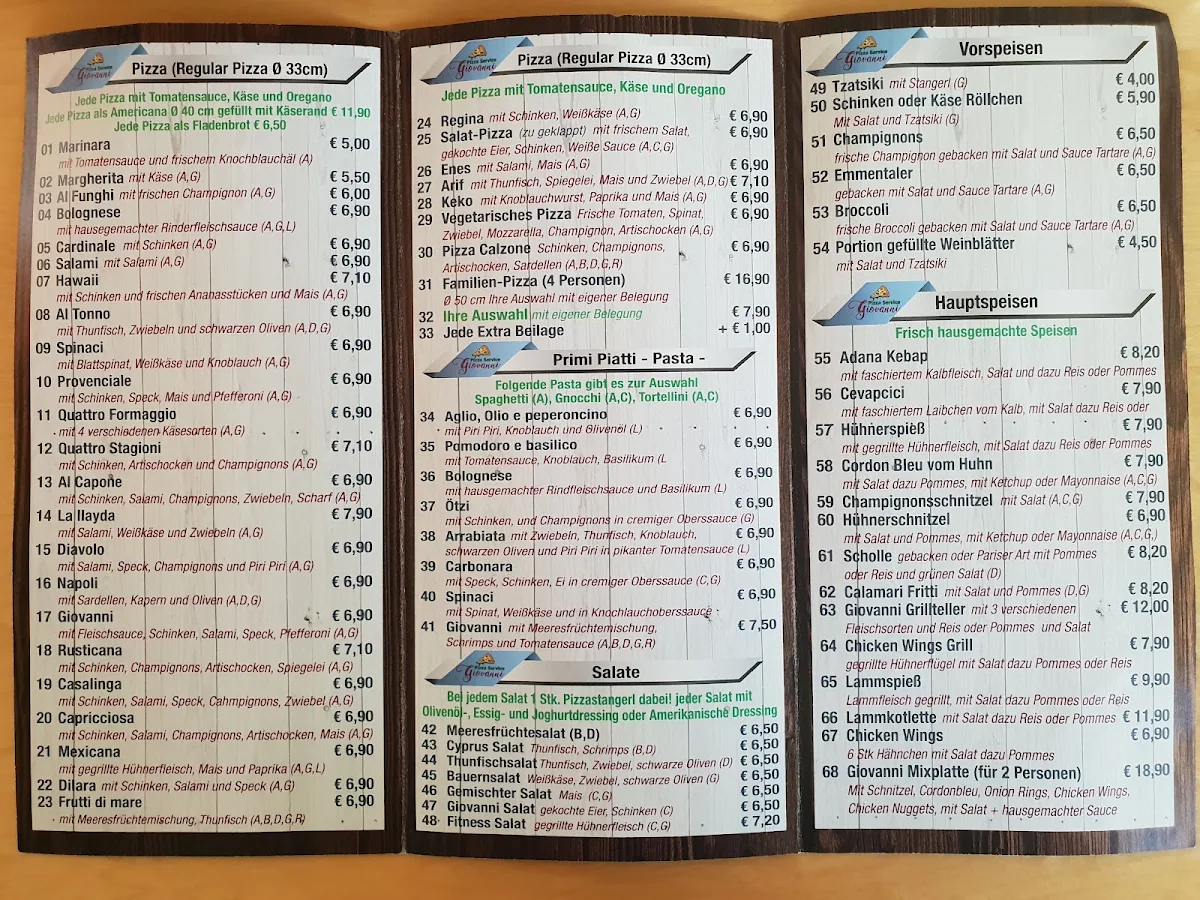 Pizza Service
Giovanni
Pizza (Regular Pizza Ø 33cm)
Jede Pizza mit Tomatensauce, Käse und Oregano
Jede Pizza als Americana Ø 40 cm gefüllt mit Käserand € 11,90
Jede Pizza als Fladenbrot € 6,50
01 Marinara € 5,00
mit Tomatensauce und frischem Knochblauchäl (A)
02 Margherita mit Käse (A,G) € 5,50
03 Al Funghi mit frischen Champignon (A,G) € 6,00
04 Bolognese € 6,90
mit hausegemachter Rinderfleischsauce (A,G,L)
05 Cardinale mit Schinken (A,G) € 6,90
06 Salami mit Salami (A,G) € 6,90
07 Hawaii € 7,10
mit Schinken und frischen Ananasstücken und Mais (A,G)
08 Al Tonno € 6,90
mit Thunfisch, Zwiebeln und schwarzen Oliven (A,D,G)
09 Spinaci € 6,90
mit Blattspinat, Weißkäse und Knoblauch (A,G)
10 Provenciale € 6,90
mit Schinken, Speck, Mais und Pfefferoni (A,G)
11 Quattro Formaggio € 6,90
mit 4 verschiedenen Käsesorten (A,G)
12 Quattro Stagioni € 7,10
mit Schinken, Artischocken und Champignons (A,G)
13 Al Capone € 6,90
mit Schinken, Salami, Champignons, Zwiebeln, Scharf (A,G)
14 La Ilayda € 7,90
mit Salami, Weißkäse und Zwiebeln (A,G)
15 Diavolo € 6,90
mit Salami, Speck, Champignons und Piri Piri (A,G)
16 Napoli € 6,90
mit Sardellen, Kapern und Oliven (A,D,G)
17 Giovanni € 6,90
mit Fleischsauce, Schinken, Salami, Speck, Pfefferoni (A,G)
18 Rusticana € 7,10
mit Schinken, Champignons, Artischocken, Spiegelei (A,G)
19 Casalinga € 7,90
mit Schinken, Salami, Speck, Cahmpignons, Zwiebel (A,G)
20 Capricciosa € 6,90
mit Schinken, Salami, Champignons, Artischocken, Mais (A,G)
21 Mexicana € 6,90
mit gegrillte Hühnerfleisch, Mais und Paprika (A,G,L)
22 Dilara mit Schinken, Salami und Speck (A,G) € 6,90
23 Frutti di mare € 6,90
mit Meeresfrüchtemischung, Thunfisch (A,B,D,G,R)
Pizza Service
Giovanni
Pizza (Regular Pizza Ø 33cm)
Jede Pizza mit Tomatensauce, Käse und Oregano
24 Regina mit Schinken, Weißkäse (A,G) € 6,90
25 Salat-Pizza (zu geklappt) mit frischem Salat, € 6,90
gekochte Eier, Schinken, Weiße Sauce (A,C,G)
26 Enes mit Salami, Mais (A,G) € 6,90
27 Arif mit Thunfisch, Spiegelei, Mais und Zwiebel (A,D,G) € 7,10
28 Keko mit Knoblauchwurst, Paprika und Mais (A,G) € 6,90
29 Vegetarisches Pizza Frische Tomaten, Spinat, € 6,90
Zwiebel, Mozzarella, Champignon, Artischocken (A,G)
30 Pizza Calzone Schinken, Champignons, € 6,90
Artischocken, Sardellen (A,B,D,G,R)
31 Familien-Pizza (4 Personen) € 16,90
Ø 50 cm Ihre Auswahl mit eigener Belegung
32 Ihre Auswahl mit eigener Belegung € 7,90
33 Jede Extra Beilage + € 1,00
Pizza Service
Giovanni
Primi Piatti - Pasta -
Folgende Pasta gibt es zur Auswahl
Spaghetti (A), Gnocchi (A,C), Tortellini (A,C)
34 Aglio, Olio e peperoncino € 6,90
mit Piri Piri, Knoblauch und Olivenöl (L)
35 Pomodoro e basilico € 6,90
mit Tomatensauce, Knoblauch, Basilikum (L
36 Bolognese € 6,90
mit hausgemachter Rindfleischsauce und Basilikum (L)
37 Ötzi € 6,90
mit Schinken, und Champignons in cremiger Oberssauce (G)
38 Arrabiata mit Zwiebeln, Thunfisch, Knoblauch, € 6,90
schwarzen Oliven und Piri Piri in pikanter Tomatensauce (L)
39 Carbonara € 6,90
mit Speck, Schinken, Ei in cremiger Oberssauce (C,G)
40 Spinaci € 6,90
mit Spinat, Weißkäse und in Knochlauchoberssauce
41 Giovanni mit Meeresfrüchtemischung, € 7,50
Schrimps und Tomatensauce (A,B,D,G,R)
Pizza Service
Giovanni
Salate
Bei jedem Salat 1 Stk. Pizzastangerl dabei! jeder Salat mit
Olivenöl-, Essig- und Joghurtdressing oder Amerikanische Dressing
42 Meeresfrüchtesalat (B,D) € 6,50
43 Cyprus Salat Thunfisch, Schrimps (B,D) € 6,50
44 Thunfischsalat Thunfisch, Zwiebel, schwarze Oliven (D) € 6,50
45 Bauernsalat Weißkäse, Zwiebel, schwarze Oliven (G) € 6,50
46 Gemischter Salat Mais (C,G) € 6,50
47 Giovanni Salat gekochte Eier, Schinken (C) € 6,50
48 Fitness Salat gegrillte Hühnerfleisch (C,G) € 7,20
Pizza Service
Giovanni
Vorspeisen
49 Tzatsiki mit Stangerl (G) € 4,00
50 Schinken oder Käse Röllchen € 5,90
Mit Salat und Tzatsiki (G)
51 Champignons € 6,50
frische Champignon gebacken mit Salat und Sauce Tartare (A,G)
52 Emmentaler € 6,50
gebacken mit Salat und Sauce Tartare (A,G)
53 Broccoli € 6,50
frische Broccoli gebacken mit Salat und Sauce Tartare (A,G)
54 Portion gefüllte Weinblätter € 4,50
mit Salat und Tzatsiki
Pizza Service
Giovanni
Hauptspeisen
Frisch hausgemachte Speisen
55 Adana Kebap € 8,20
mit faschiertem Kalbfleisch, Salat und dazu Reis oder Pommes
56 Cevapcici € 7,90
mit faschiertem Laibchen vom Kalb, mit Salat dazu Reis oder
57 Hühnerspieß € 7,90
mit gegrillte Hühnerfleisch, mit Salat dazu Reis oder Pommes
58 Cordon Bleu vom Huhn € 7,90
mit Salat dazu Pommes, mit Ketchup oder Mayonnaise (A,C,G)
59 Champignonsschnitzel mit Salat (A,C,G) € 7,90
60 Hühnerschnitzel € 6,90
mit Salat und Pommes, mit Ketchup oder Mayonnaise (A,C,G,)
61 Scholle gebacken oder Pariser Art mit Pommes € 8,20
oder Reis und grünen Salat (D)
62 Calamari Fritti mit Salat und Pommes (D,G) € 8,20
63 Giovanni Grillteller mit 3 verschiedenen € 12,00
Fleischsorten und Reis oder Pommes und Salat
64 Chicken Wings Grill € 7,90
gegrillte Hühnerflügel mit Salat dazu Pommes oder Reis
65 Lammspieß € 9,90
Lammfleisch gegrillt, mit Salat dazu Pommes oder Reis
66 Lammkotlette mit Salat dazu Reis oder Pommes € 11,90
67 Chicken Wings € 6,90
6 Stk Hähnchen mit Salat dazu Pommes
68 Giovanni Mixplatte (für 2 Personen) € 18,90
Mit Schnitzel, Cordonbleu, Onion Rings, Chicken Wings,
Chicken Nuggets, mit Salat + hausgemachter Sauce